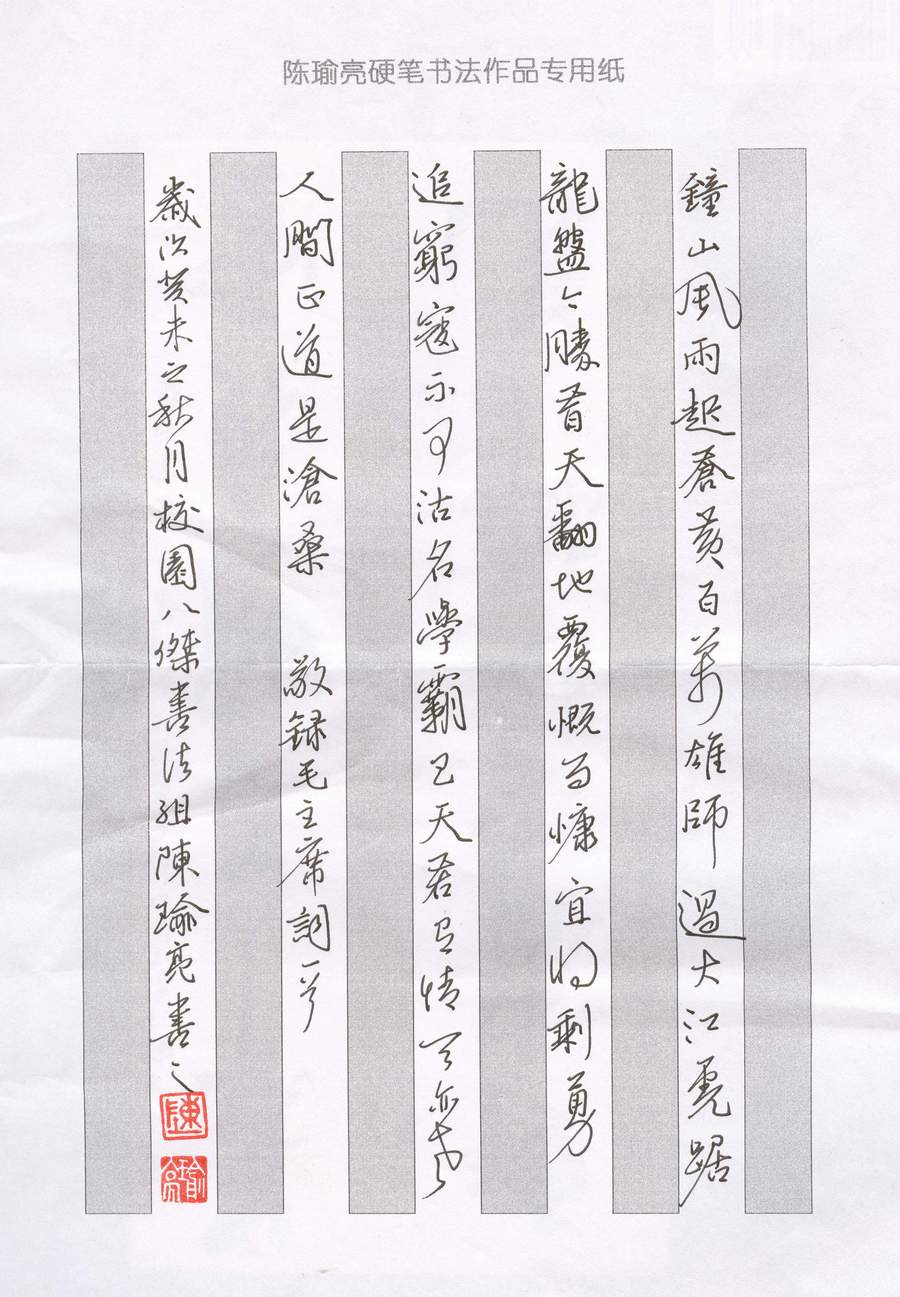 陈瑜亮硬笔书法作品专用纸
鐘山風雨起蒼黃百萬雄師過大江虎踞
龍盤今勝昔天翻地覆慨而慷宜將剩勇
追窮寇不可沽名學霸王天若有情天亦老
人間正道是滄桑 敬録毛主席詞一首
歲次癸未之秋月校園八傑書法組陳瑜亮書之
陳
瑜亮